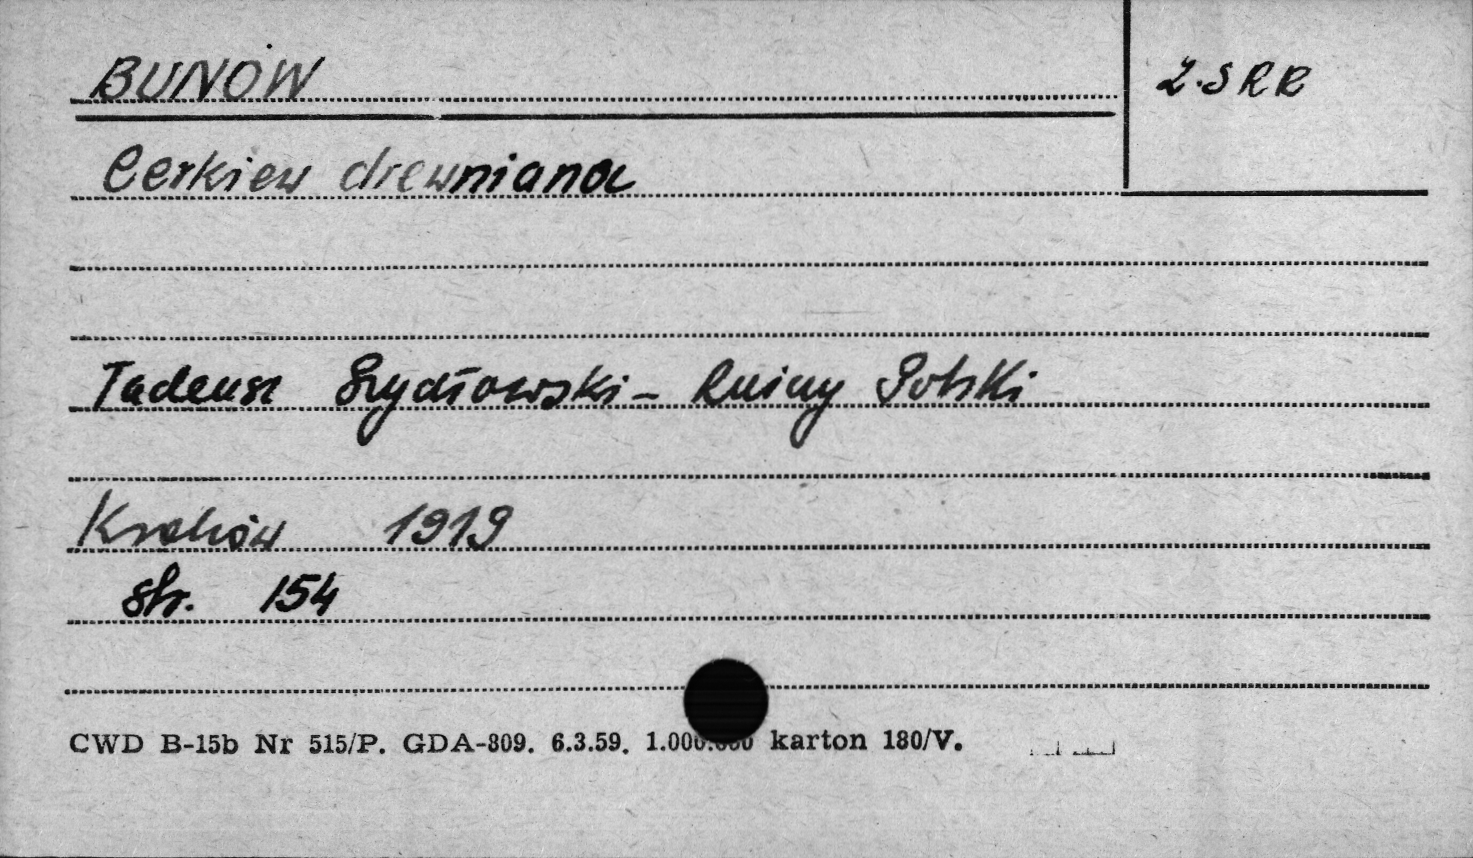 BUNÓW
Z.SRR
Cerkiew drewniana
Tadeusz Szydłowski – Ruiny Polski
Kraków 1919
str. 154
CWD B-15b Nr 515/P. GDA-809. 6.3.59. 1.000.000 karton 180/V.